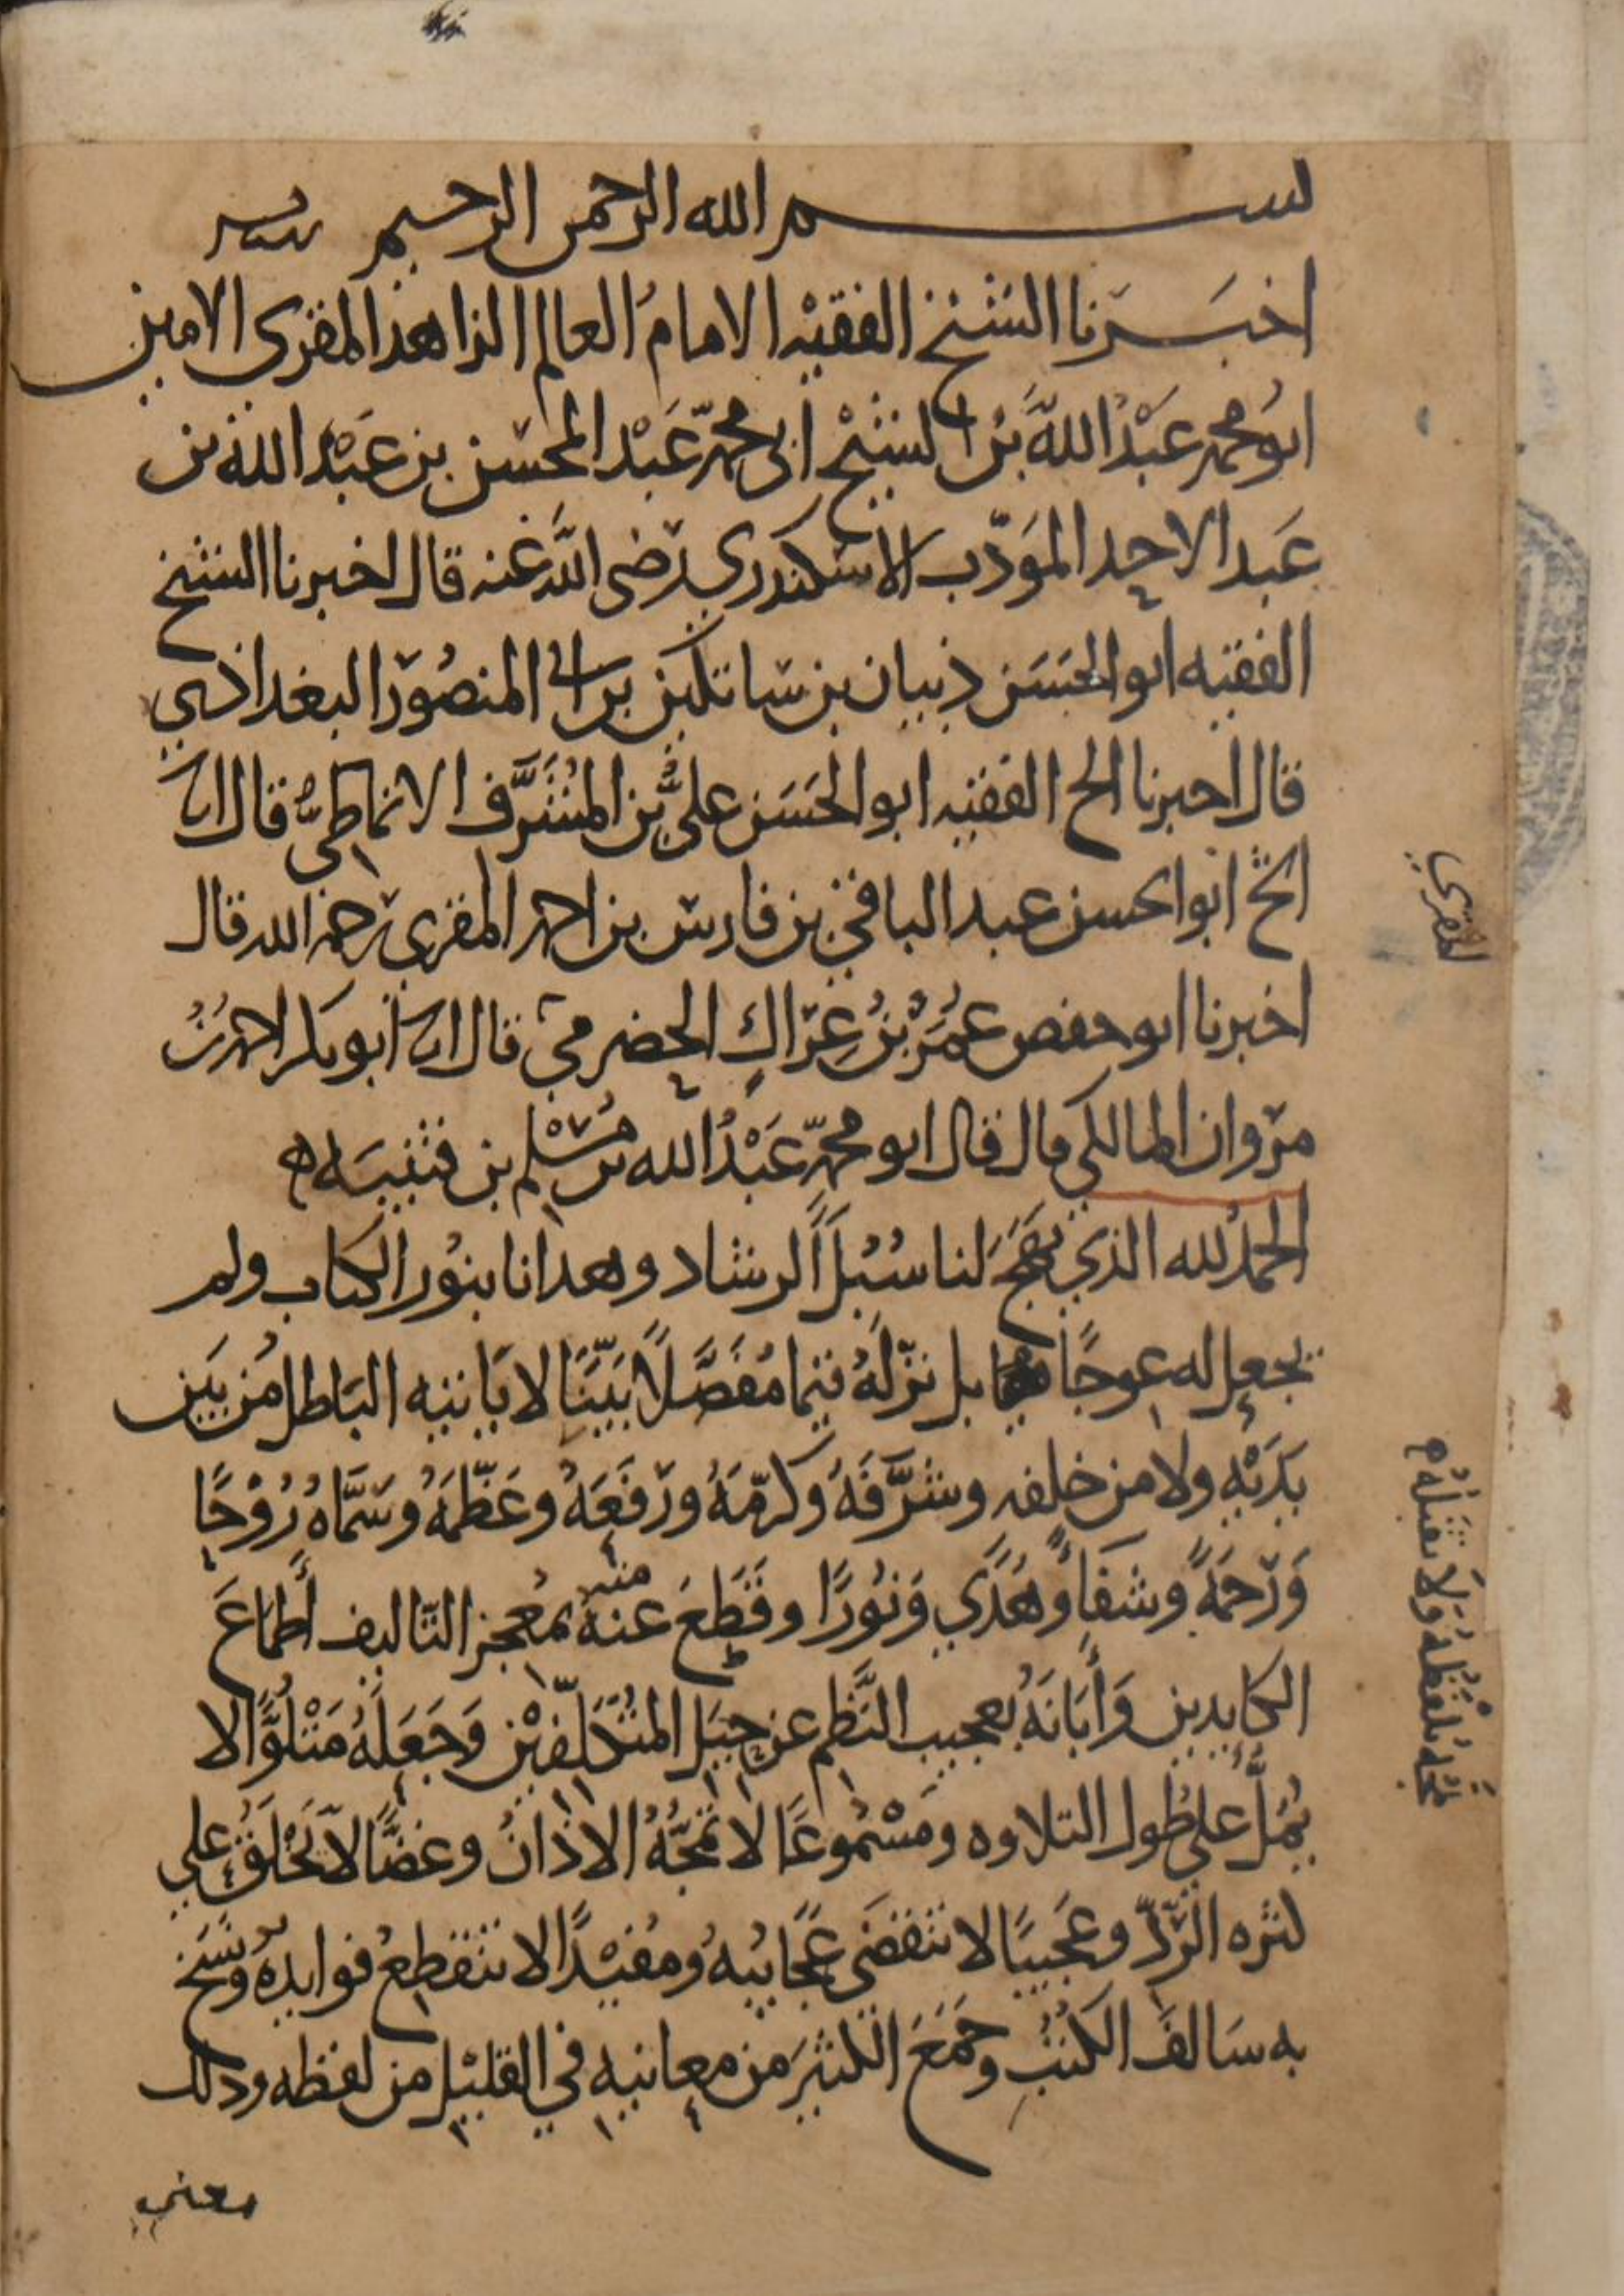 بسم الله الرحمن الرحيم
اخبرنا الشيخ الفقيه الامامُ العالم الزاهد المقرى الامين
ابوُ محمد عَبْدُ اللهِ بن الشيخ ابى محمّد عَبْد المحسن بن عَبْد الله بن
عَبد الاحد المؤدّب الاسكندري رضى الله عنه قال اخبرنا الشيخ
الفقيه ابو الحسَن ذبيان بن ساتكين بن ابى المنصُور البغدادي
قال اخبرنا الشيخ الفقيه ابو الحَسَن علىُّ بن المُشَرَّف الانماطىُّ قال انا
الشيخ ابو الحسن عبد الباقي بن فارس بن احمد المقري رحمه الله قال
اخبرنا ابو حفص عُمَرُ بْنُ عِرَاكٍ الحضرمي قال انا ابو بكر احمد بْنُ
مروان المالكي قال قال ابو محمّد عَبْدُ الله بن مُسْلم بن قتيبَه
الحمدُ لله الذي نهَجَ لنا سُبُلَ الرشاد وهدانا بنوُر الكتاب ولم
يجعل له عوجًا بل نزّلَهُ قيما مُفَصَّلاً بَيّنًا لا يَاتيه البَاطل من بَين
يَدَيْهِ ولا من خلفه وشرَّفَهُ وكرمّهُ ورَفعَهُ وعَظّمَهُ وسَمَّاهُ رُوْحًا
وَرَحمَةً وشفَاءً وهُدًي وَنوُرًا وقَطَعَ عنه منه بمُعجز التّاليف أطمَاعَ
الكايدين وَأبَانَهُ بعجيب النَّظم عن حِيَل المُتَكَلّفِيْن وَجَعَلَهُ مَتْلُوًّا لا
يُمَلُّ على طُول التلاوه ومَسْمُوعًا لا تمُجُّهُ الاذانُ وغضًّا لا يَخْلَقُ علي
كثره الرّدِّ وعَجَيبًا لا تنقضَى عَجَايبُهُ ومُفيْدًا لا تنقطعُ فوايدهُ ونَسَخ
به سَالفَ الكتُب وَجَمَعَ الكثيرَ من معانيه في القليْل من لفظه وذلك
معنى
المقرى